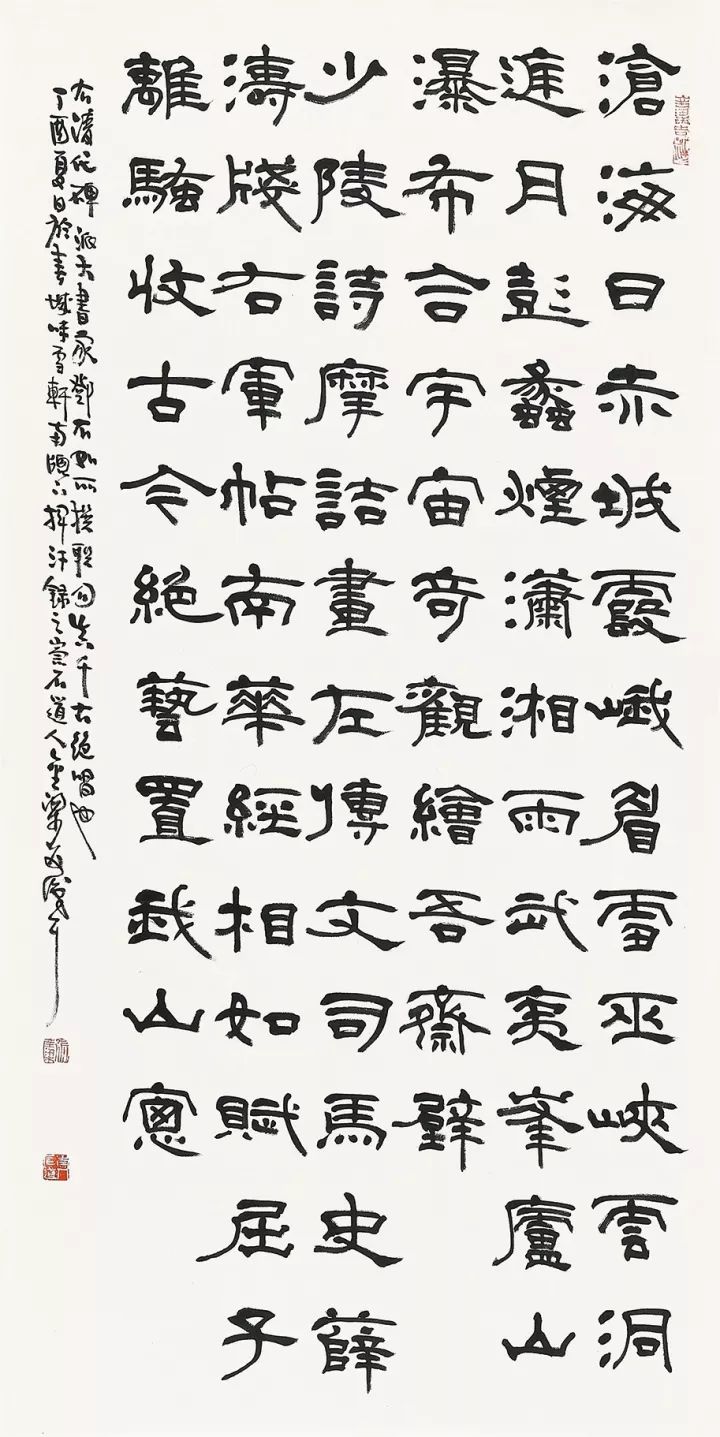 滄海日赤城霞峨眉雪巫峽雲洞
庭月彭蠡煙瀟湘雨武夷峯廬山
瀑布合宇宙奇觀繪吾齋壁
少陵詩摩詰畫左傳文司馬史薛
濤牋右軍帖南華經相如賦屈子
離騷收古今絕藝置我山窗
右清代碑派大書家鄧石如所撰聯句真千古絕唱也
丁酉夏日於春城味雪軒南牖下揮汗錄之崇石道人